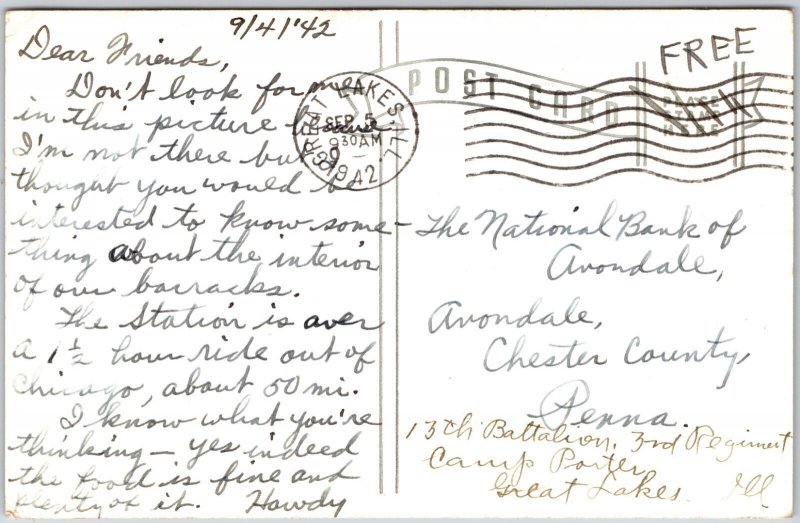 9/4/'42
Dear Friends,
Don't look for me
in this picture because
I'm not there but I
thought you would be
interested to know some-
thing about the interior
of our barracks.
The station is over
a 1 1/2 hour ride out of
Chicago, about 50 mi.
I know what you're
thinking — yes indeed
the food is fine and
plenty of it. Howdy
GREAT LAKES, ILL.
SEP 5
9 30 AM
1942
POST CARD
FREE
PLACE
STAMP
HERE
The National Bank of
Avondale,
Avondale,
Chester County,
Penna.
13th Battalion, 3rd Regiment
Camp Porter
Great Lakes. Ill